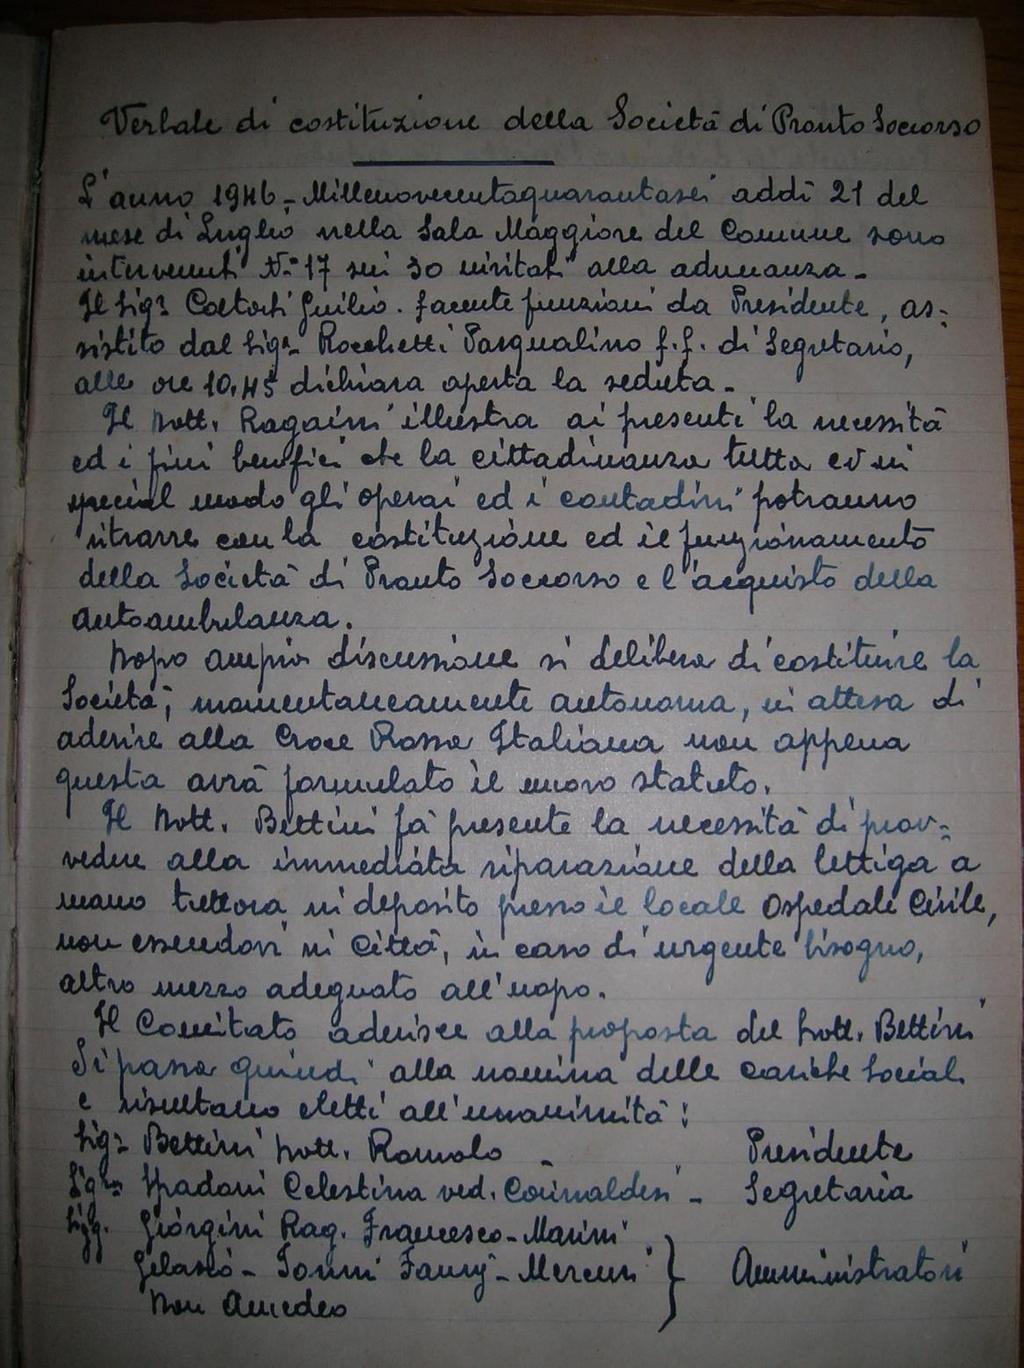 Verbale di costituzione della Società di Pronto Soccorso
L'anno 1946 - Millenovecentoquarantasei addì 21 del
mese di Luglio nella Sala Maggiore del Comune sono
intervenuti N° 17 sui 30 invitati alla adunanza -
Il Sigr Giulio. facente funzioni da Presidente, as=
sistito dal Sigr Rocchetti Pasqualino f.f. di Segretario,
alle ore 10,45 dichiara aperta la seduta -
Il Dott. Ragaini illustra ai presenti la necessità
ed i fini benefici che la cittadinanza tutta ed in
special modo gli operai ed i contadini potranno
ritrarre con la costituzione ed il funzionamento
della Società di Pronto Soccorso e l'acquisto della
autoambulanza.
Dopo ampia discussione si delibera di costituire la
Società, momentaneamente autonoma, in attesa di
aderire alla Croce Rossa Italiana non appena
questa avrà formulato il nuovo statuto.
Il Dott. Bettini fà presente la necessità di prov=
vedere alla immediata riparazione della lettiga a
mano tuttora in deposito presso il locale Ospedale Civile,
non essendovi in Città, in caso di urgente bisogno,
altro mezzo adeguato all'uopo.
Il Comitato aderisce alla proposta del Dott. Bettini
Si passa quindi alla nomina delle cariche Sociali
e risultano eletti all'unanimità:
Sigr Bettini Dott. Romolo - Presidente
Sigra Spadoni Celestina ved. Corinaldesi - Segretaria
Sigg. Giorgini Rag. Francesco - Marini
Gelasio - Tonni - Mercuri } Amministratori
Don Amedeo